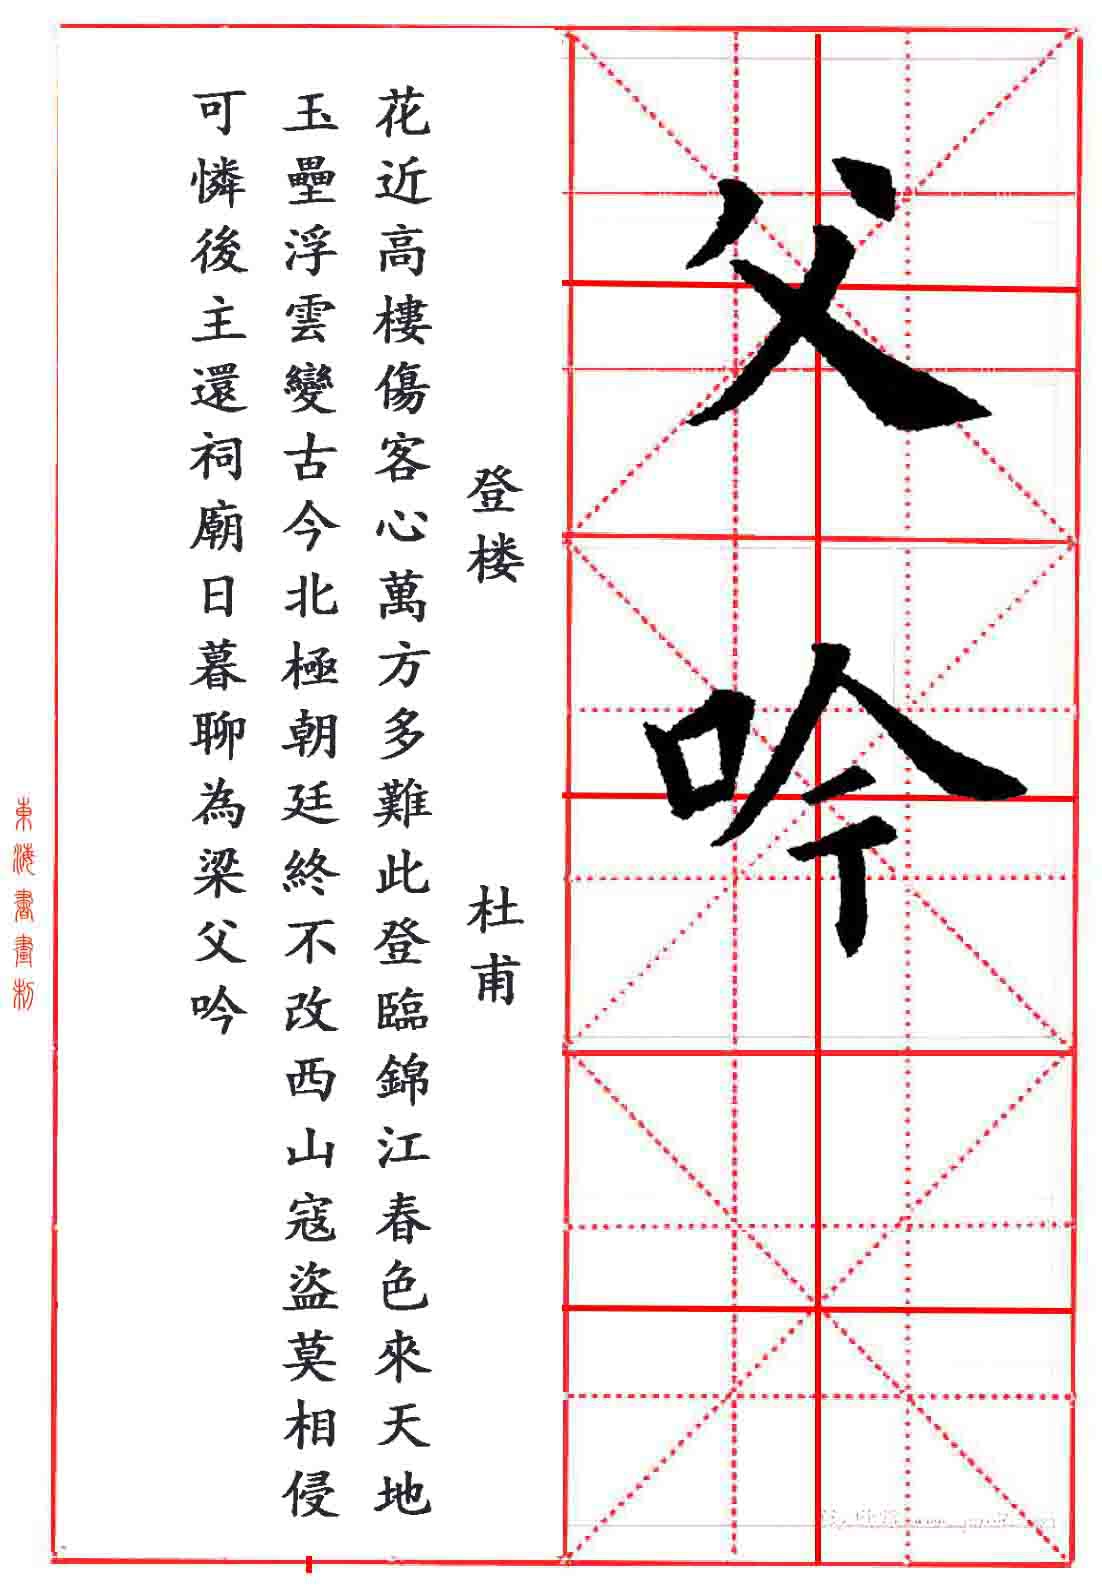 父吟
登楼 杜甫
花近高樓傷客心萬方多難此登臨錦江春色來天地
玉壘浮雲變古今北極朝廷終不改西山寇盜莫相侵
可憐後主還祠廟日暮聊為梁父吟
東海書畫制